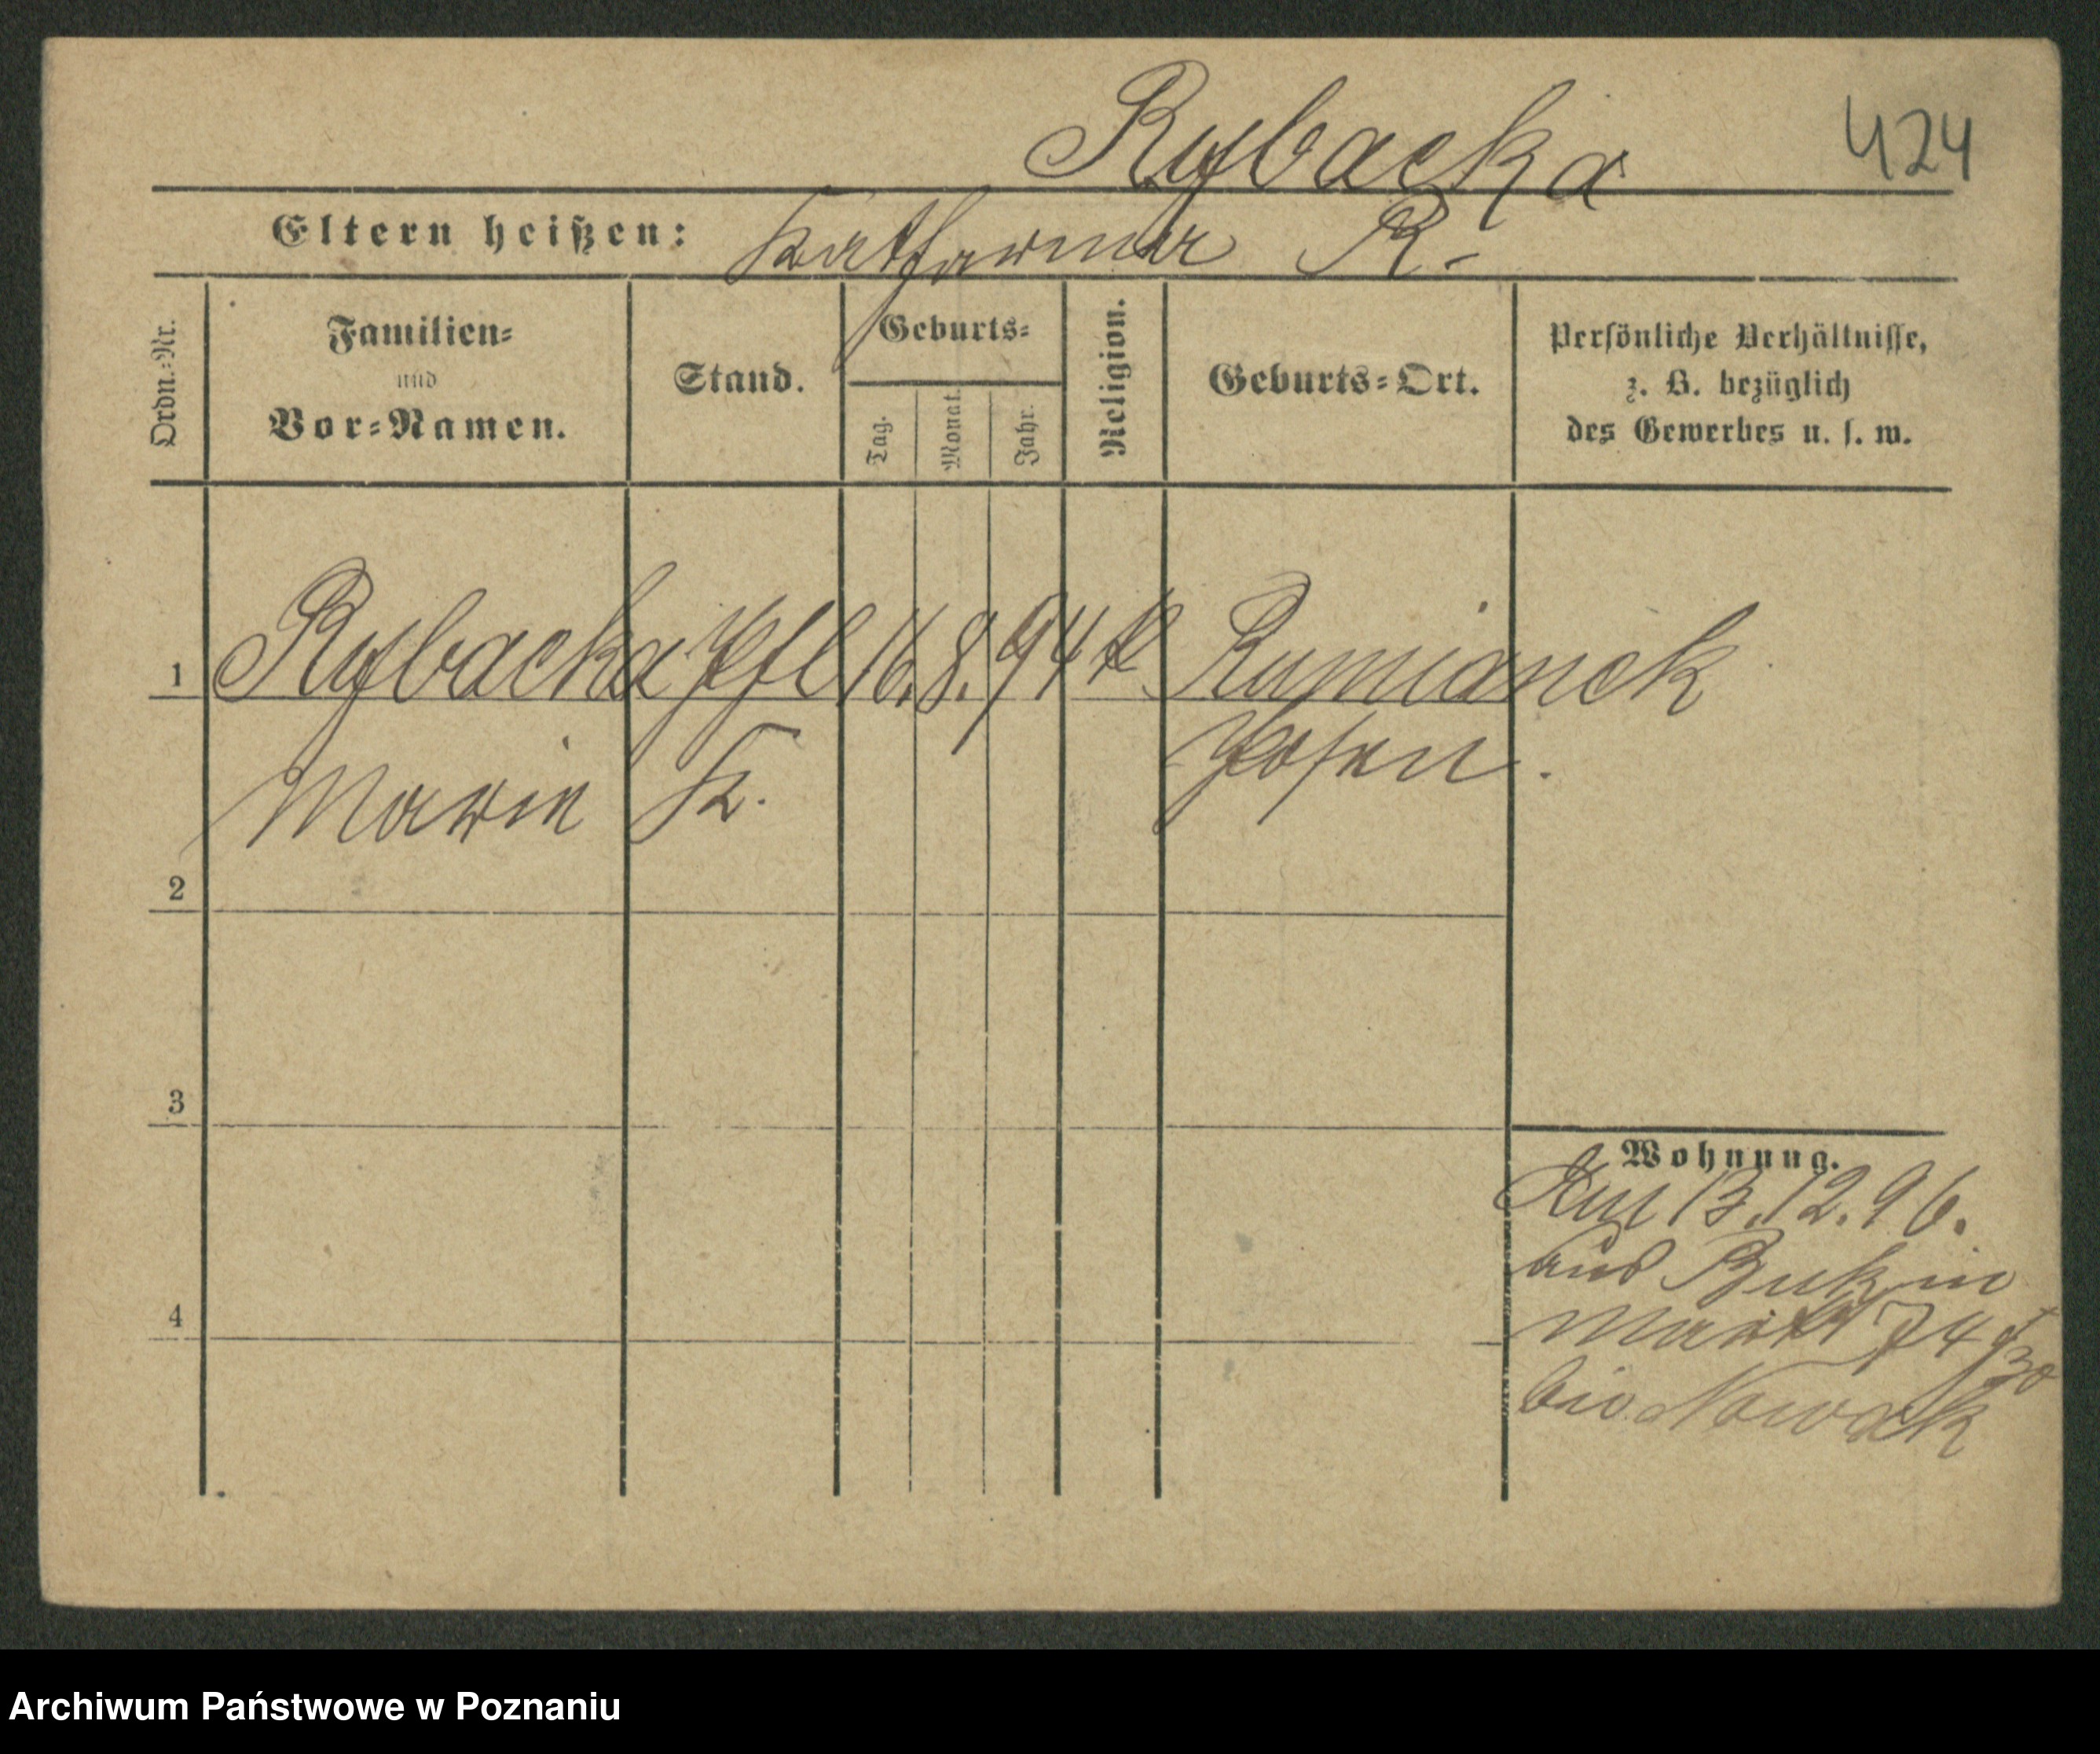 Rybacka
424
Eltern heißen: Katharina R.
Ordn.-Nr.
Familien-
und
Vor-Namen.
Stand.
Geburts-
Tag.
Monat.
Jahr.
Religion.
Geburts-Ort.
Persönliche Verhältnisse,
z. B. bezüglich
des Gewerbes u. s. w.
1 Rybacka Pfl 16. 8. 94 k Rumianek
Marie K. Posen.
2
3
4
Wohnung.
13.12.96.
aus Buk in
Markt 74
bei Nowak
Archiwum Państwowe w Poznaniu